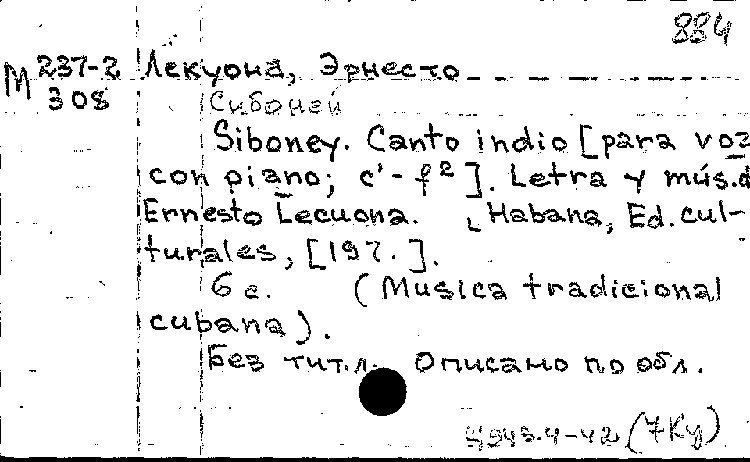 884
М 237-2 Лекуона, Эрнесто
308 Сибоней
Siboney. Canto indio [para voz
con piano; c'-f²]. Letra y mús.d
Ernesto Lecuona. Habana, Ed. cul-
turales, [197.].
6 с. (Musica tradicional
cubana).
Без тит.л. Описано по обл.
(7Ку)